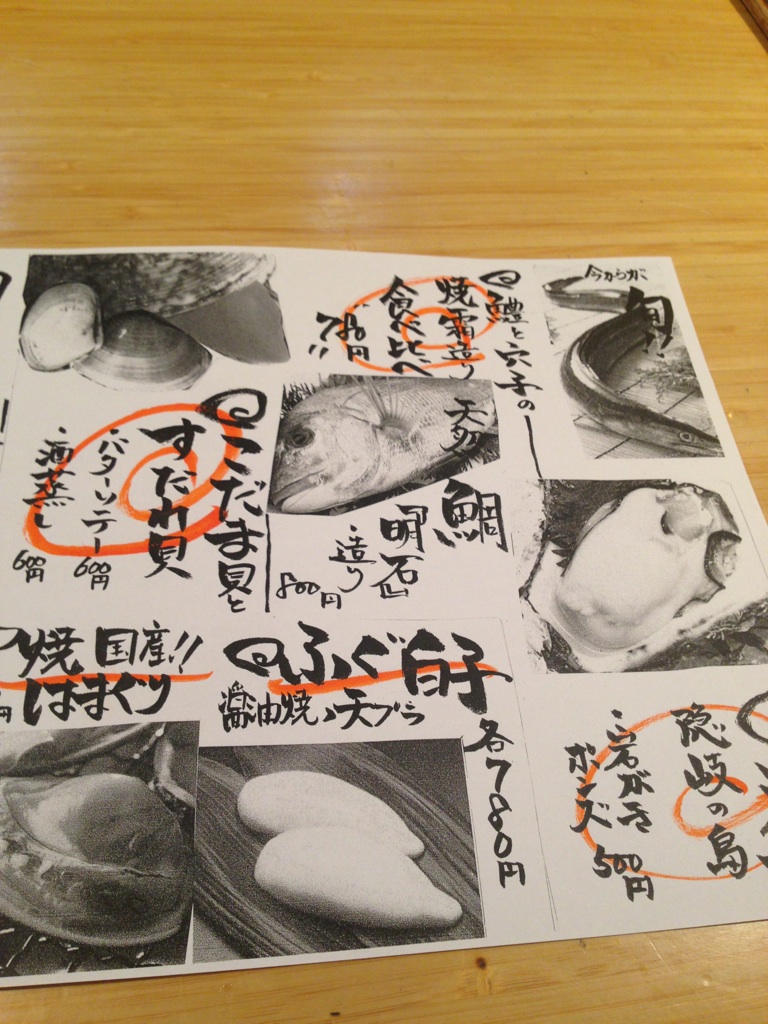 今からが
旬!!
鱧と穴子の
焼霜造り
食べ比べ
780円
!!
天然
鯛
明石
・造り
800円
こだま貝と
すだれ貝
・バターソテー
600円
・酒蒸し
600円
隠岐の島
・岩がき
ポンズ
500円
ふぐ白子
醤油焼・天ブラ
各780円
国産!!
焼はまぐり
円